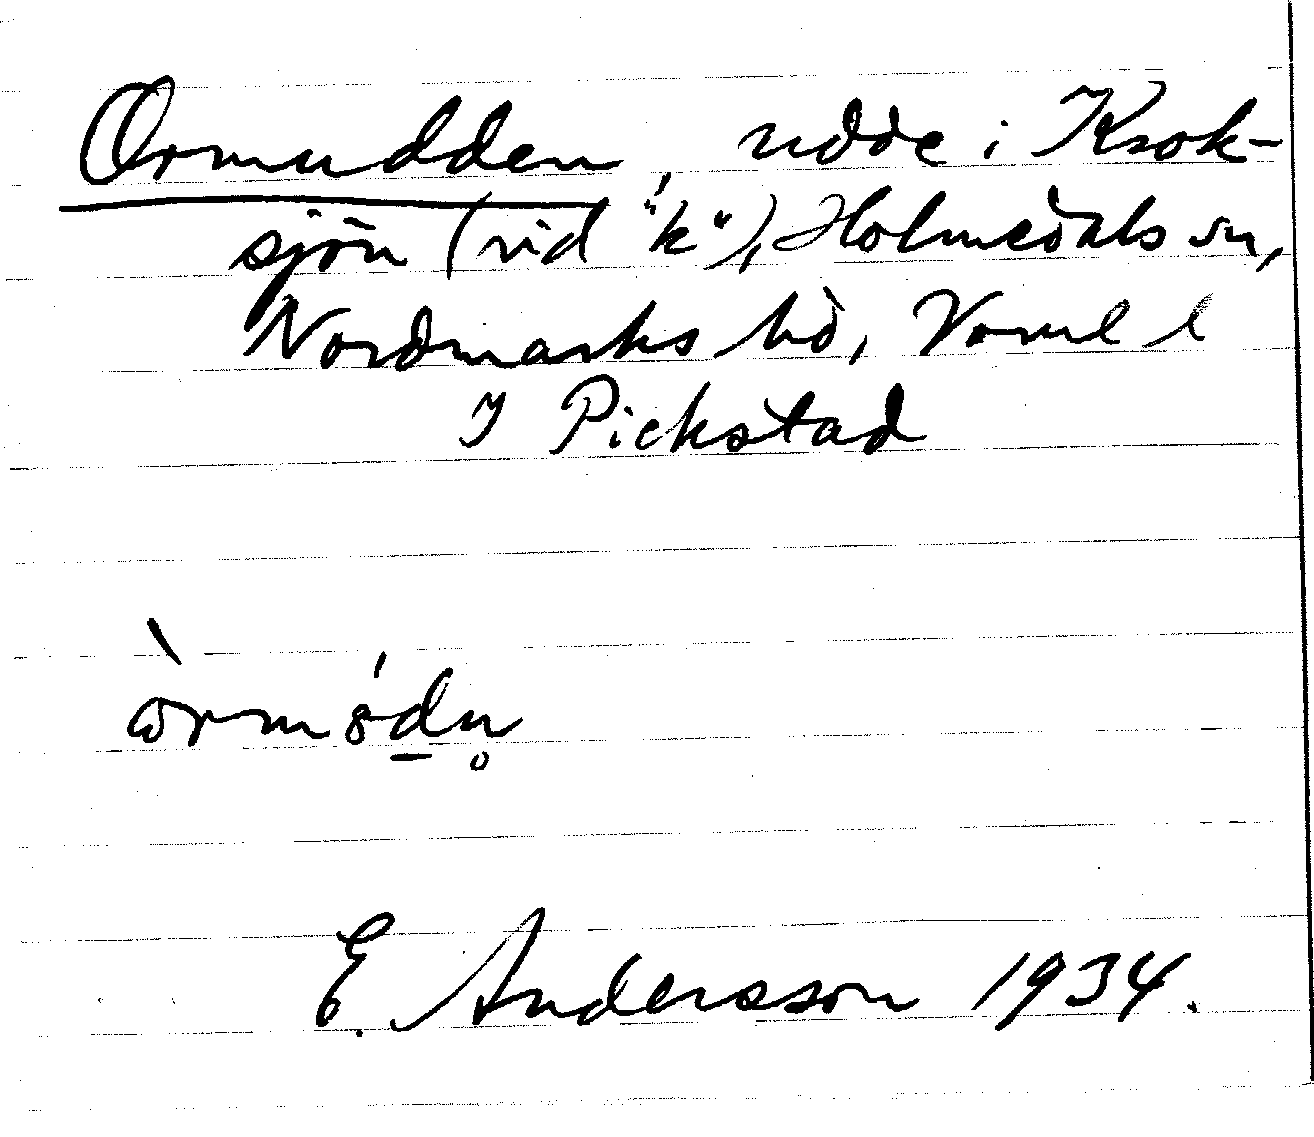 Ormudden, udde i Krok-
sjön (vid "k"), Holmedals sn,
Nordmarks hd, Vorml l
I Pickstad
òrmó̱dn̥
E. Andersson 1934.